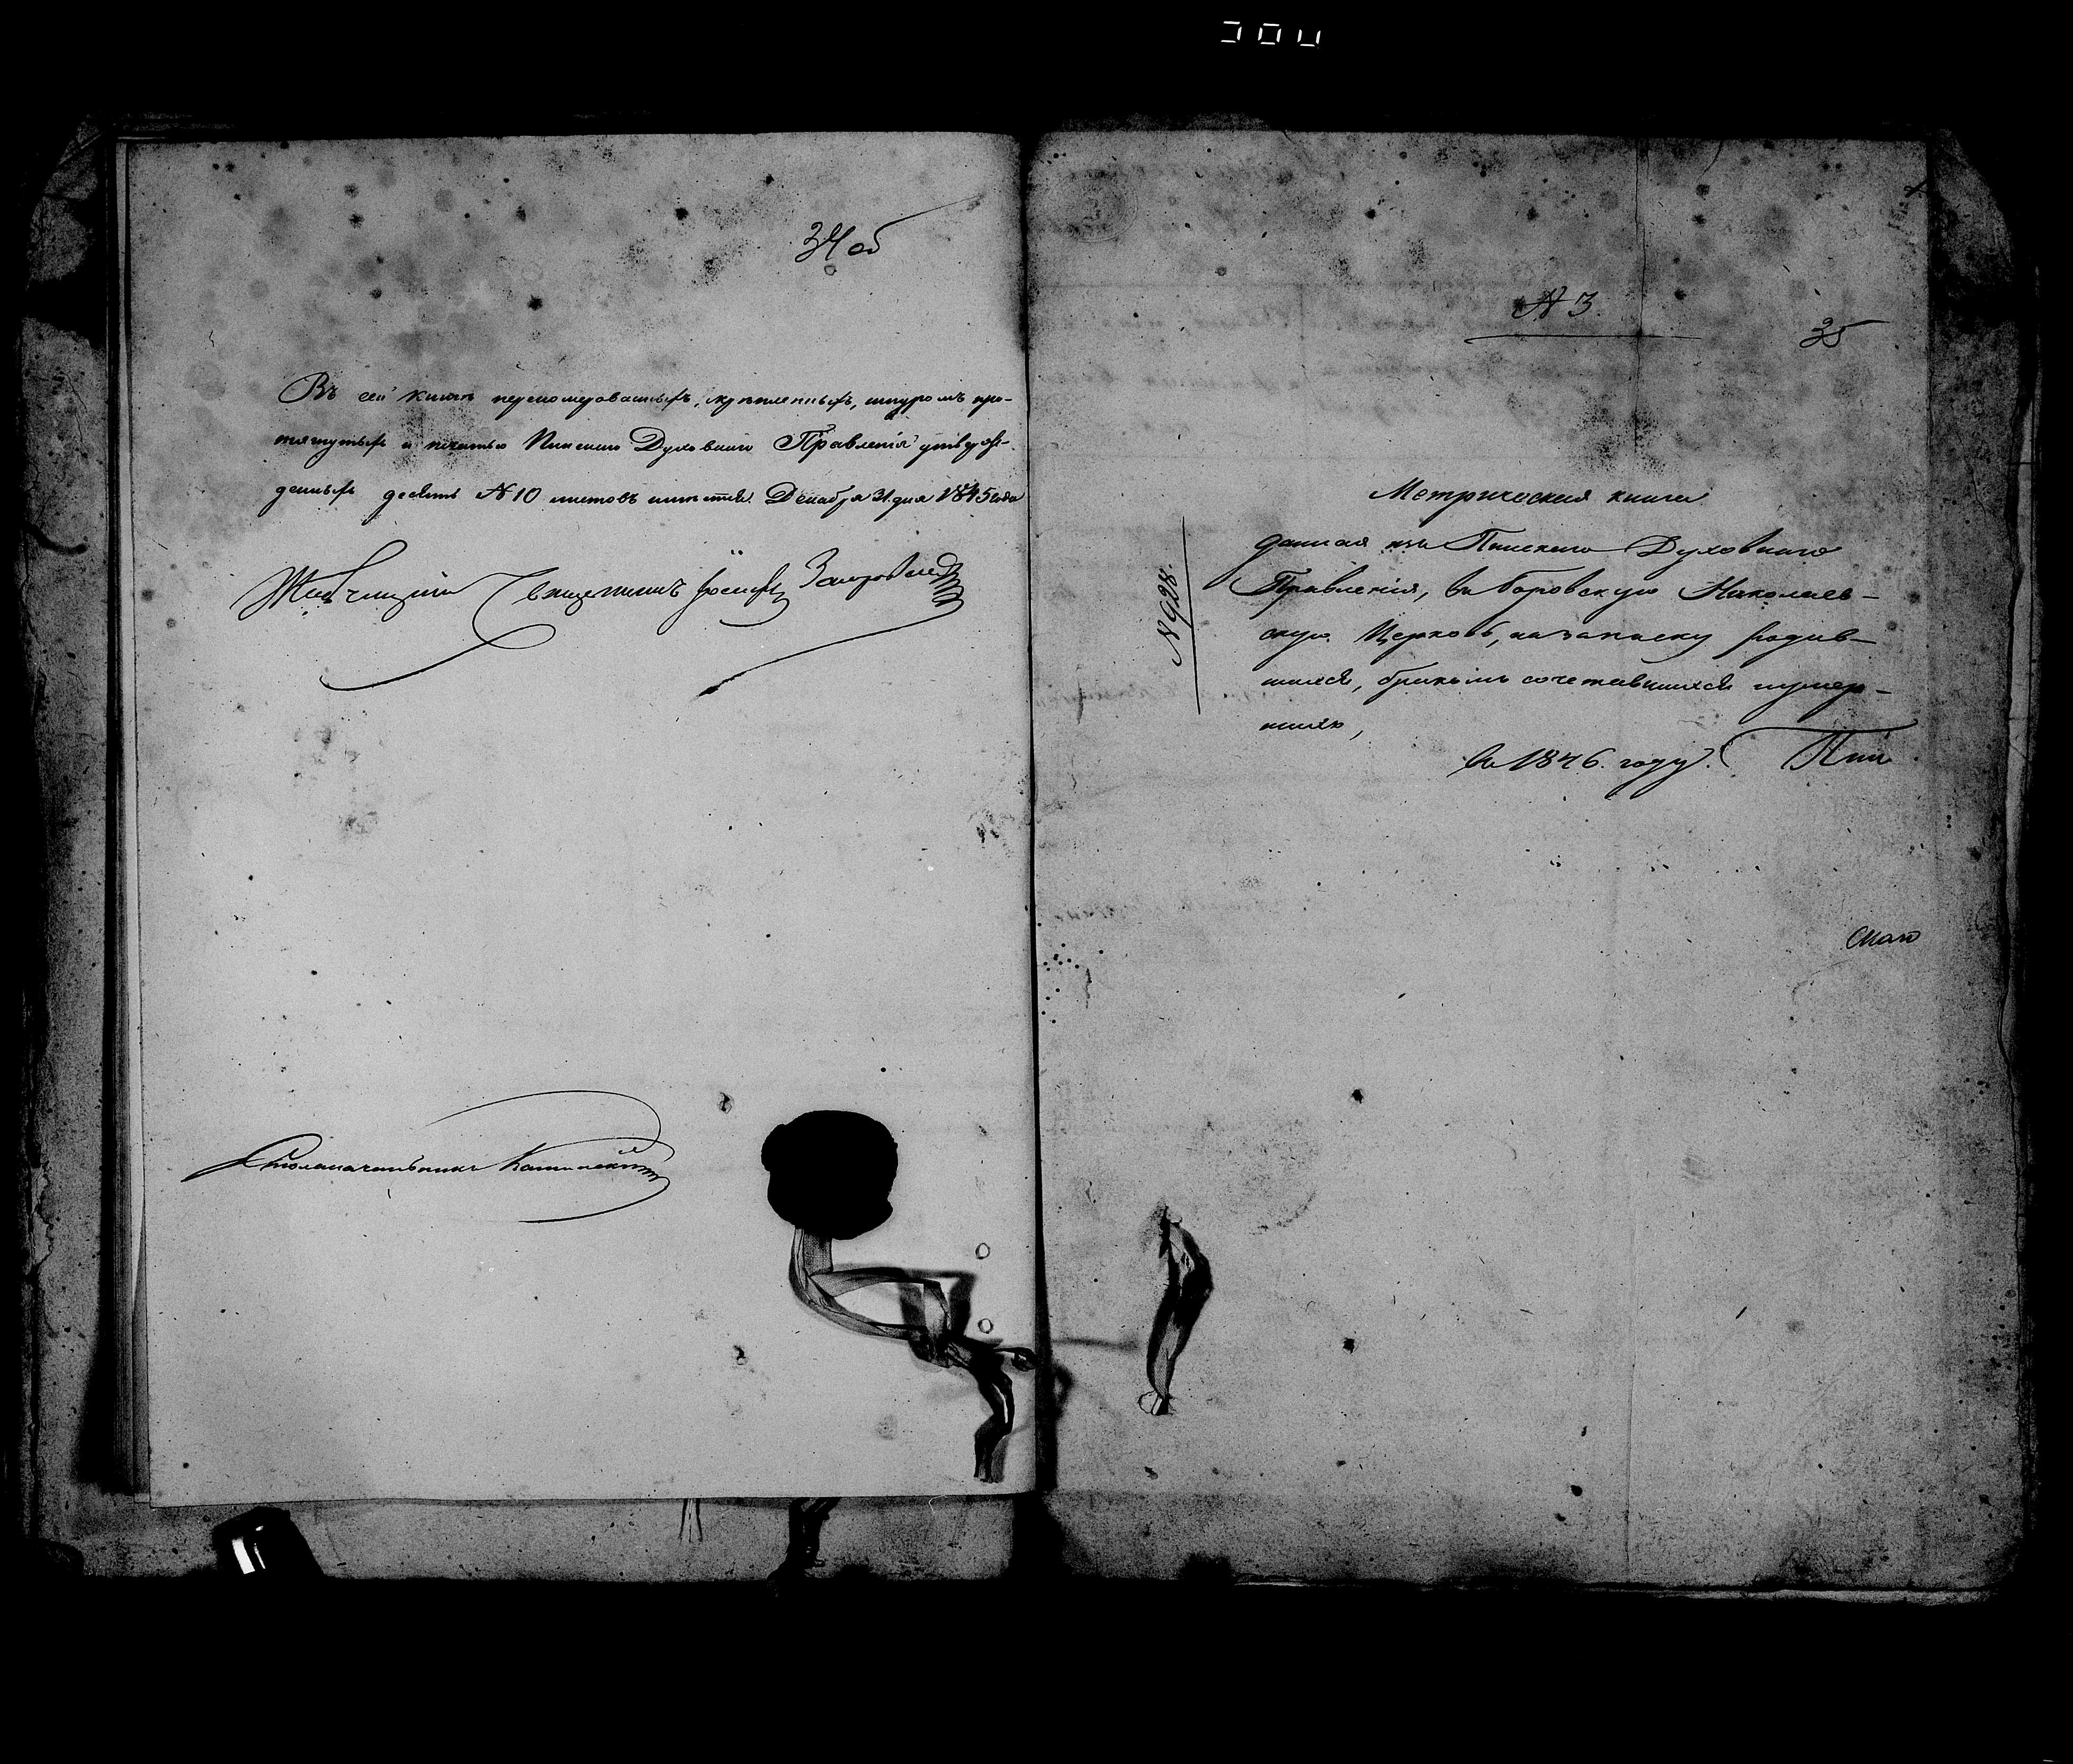 34 об
Въ сей книгѣ перенумерованныхъ, скрѣпленныхъ, шнуромъ про-
тянутыхъ и печатью Пинскаго Духовнаго Правленія утверж-
денныхъ десять N 10 листовъ имѣется. Декабря 31 дня 1845 года
Священникъ Іосифъ
Столоначальникъ
N 3.
35
Метрическая книга
N 928.
данная изъ Пинскаго Духовнаго
Правленія, въ Боровскую Николаев-
скую Церковь, на записку родив-
шихся, бракомъ сочетавшихся и умер-
шихъ,
въ 1846. году.